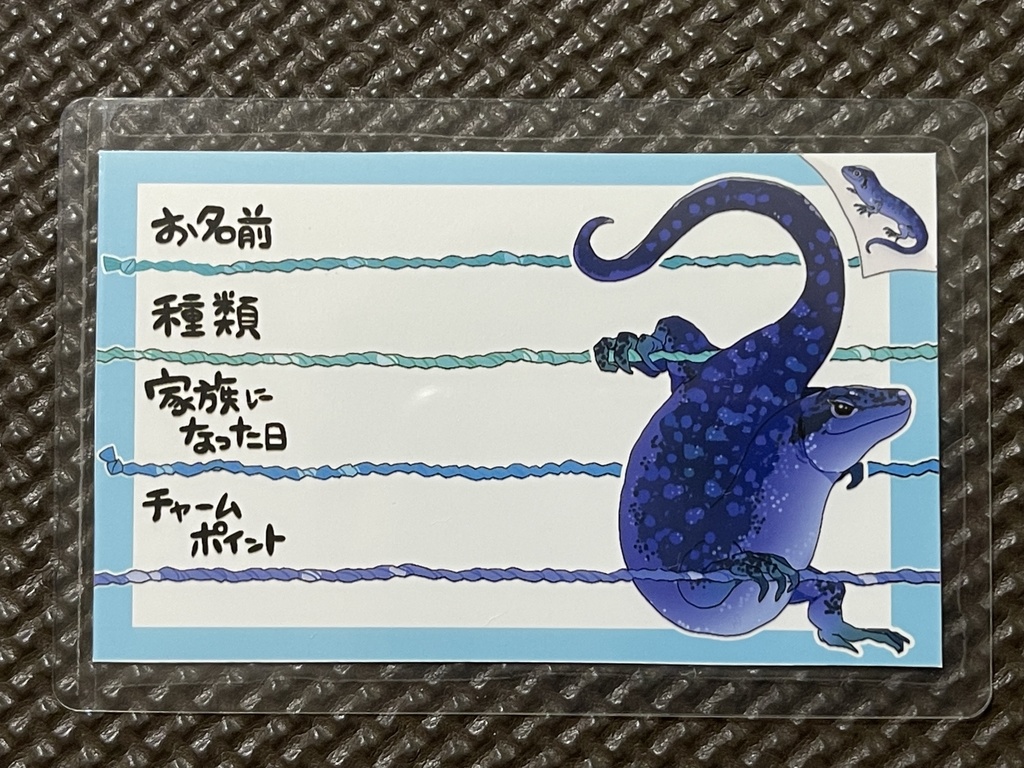 お名前
種類
家族に
なった日
チャーム
ポイント